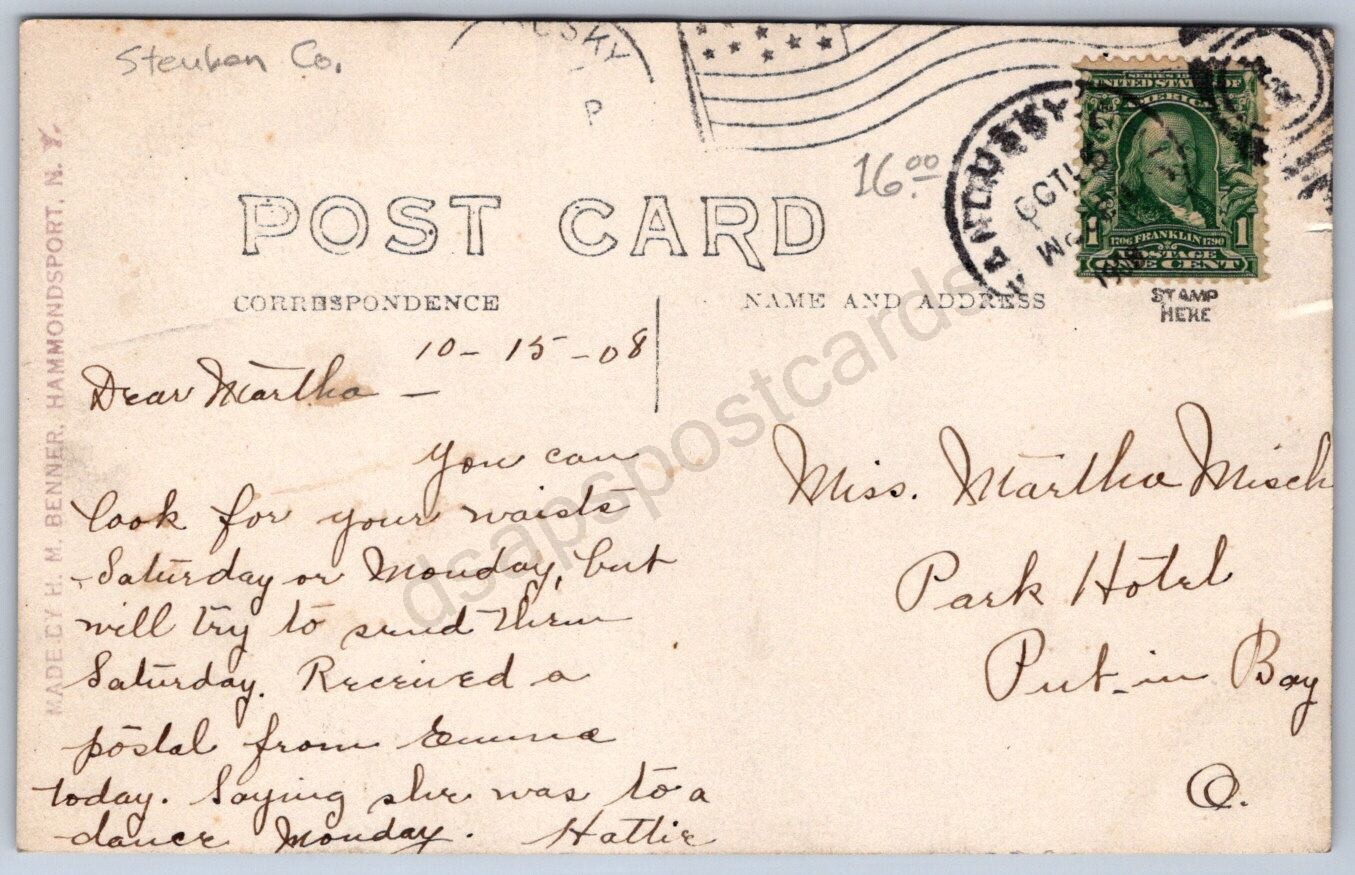 Steuben Co.
USKY
P
SERIES 19
UNITED STATES OF
AMERICA
1706 FRANKLIN 1790
1 POSTAGE 1
ONE CENT
SANDUSKY
OCT 15
1908
16.00
POST CARD
CORRESPONDENCE
NAME AND ADDRESS
STAMP
HERE
MADE BY H. M. BENNER, HAMMONDSPORT, N. Y.
10-15-08
Dear Martha —
You can
look for your waists
Saturday or Monday, but
will try to send them
Saturday. Received a
postal from Emma
today. Saying she was to a
dance Monday. Hattie
Miss. Martha Misch
Park Hotel
Put-in Bay
O.
dsapspostcards